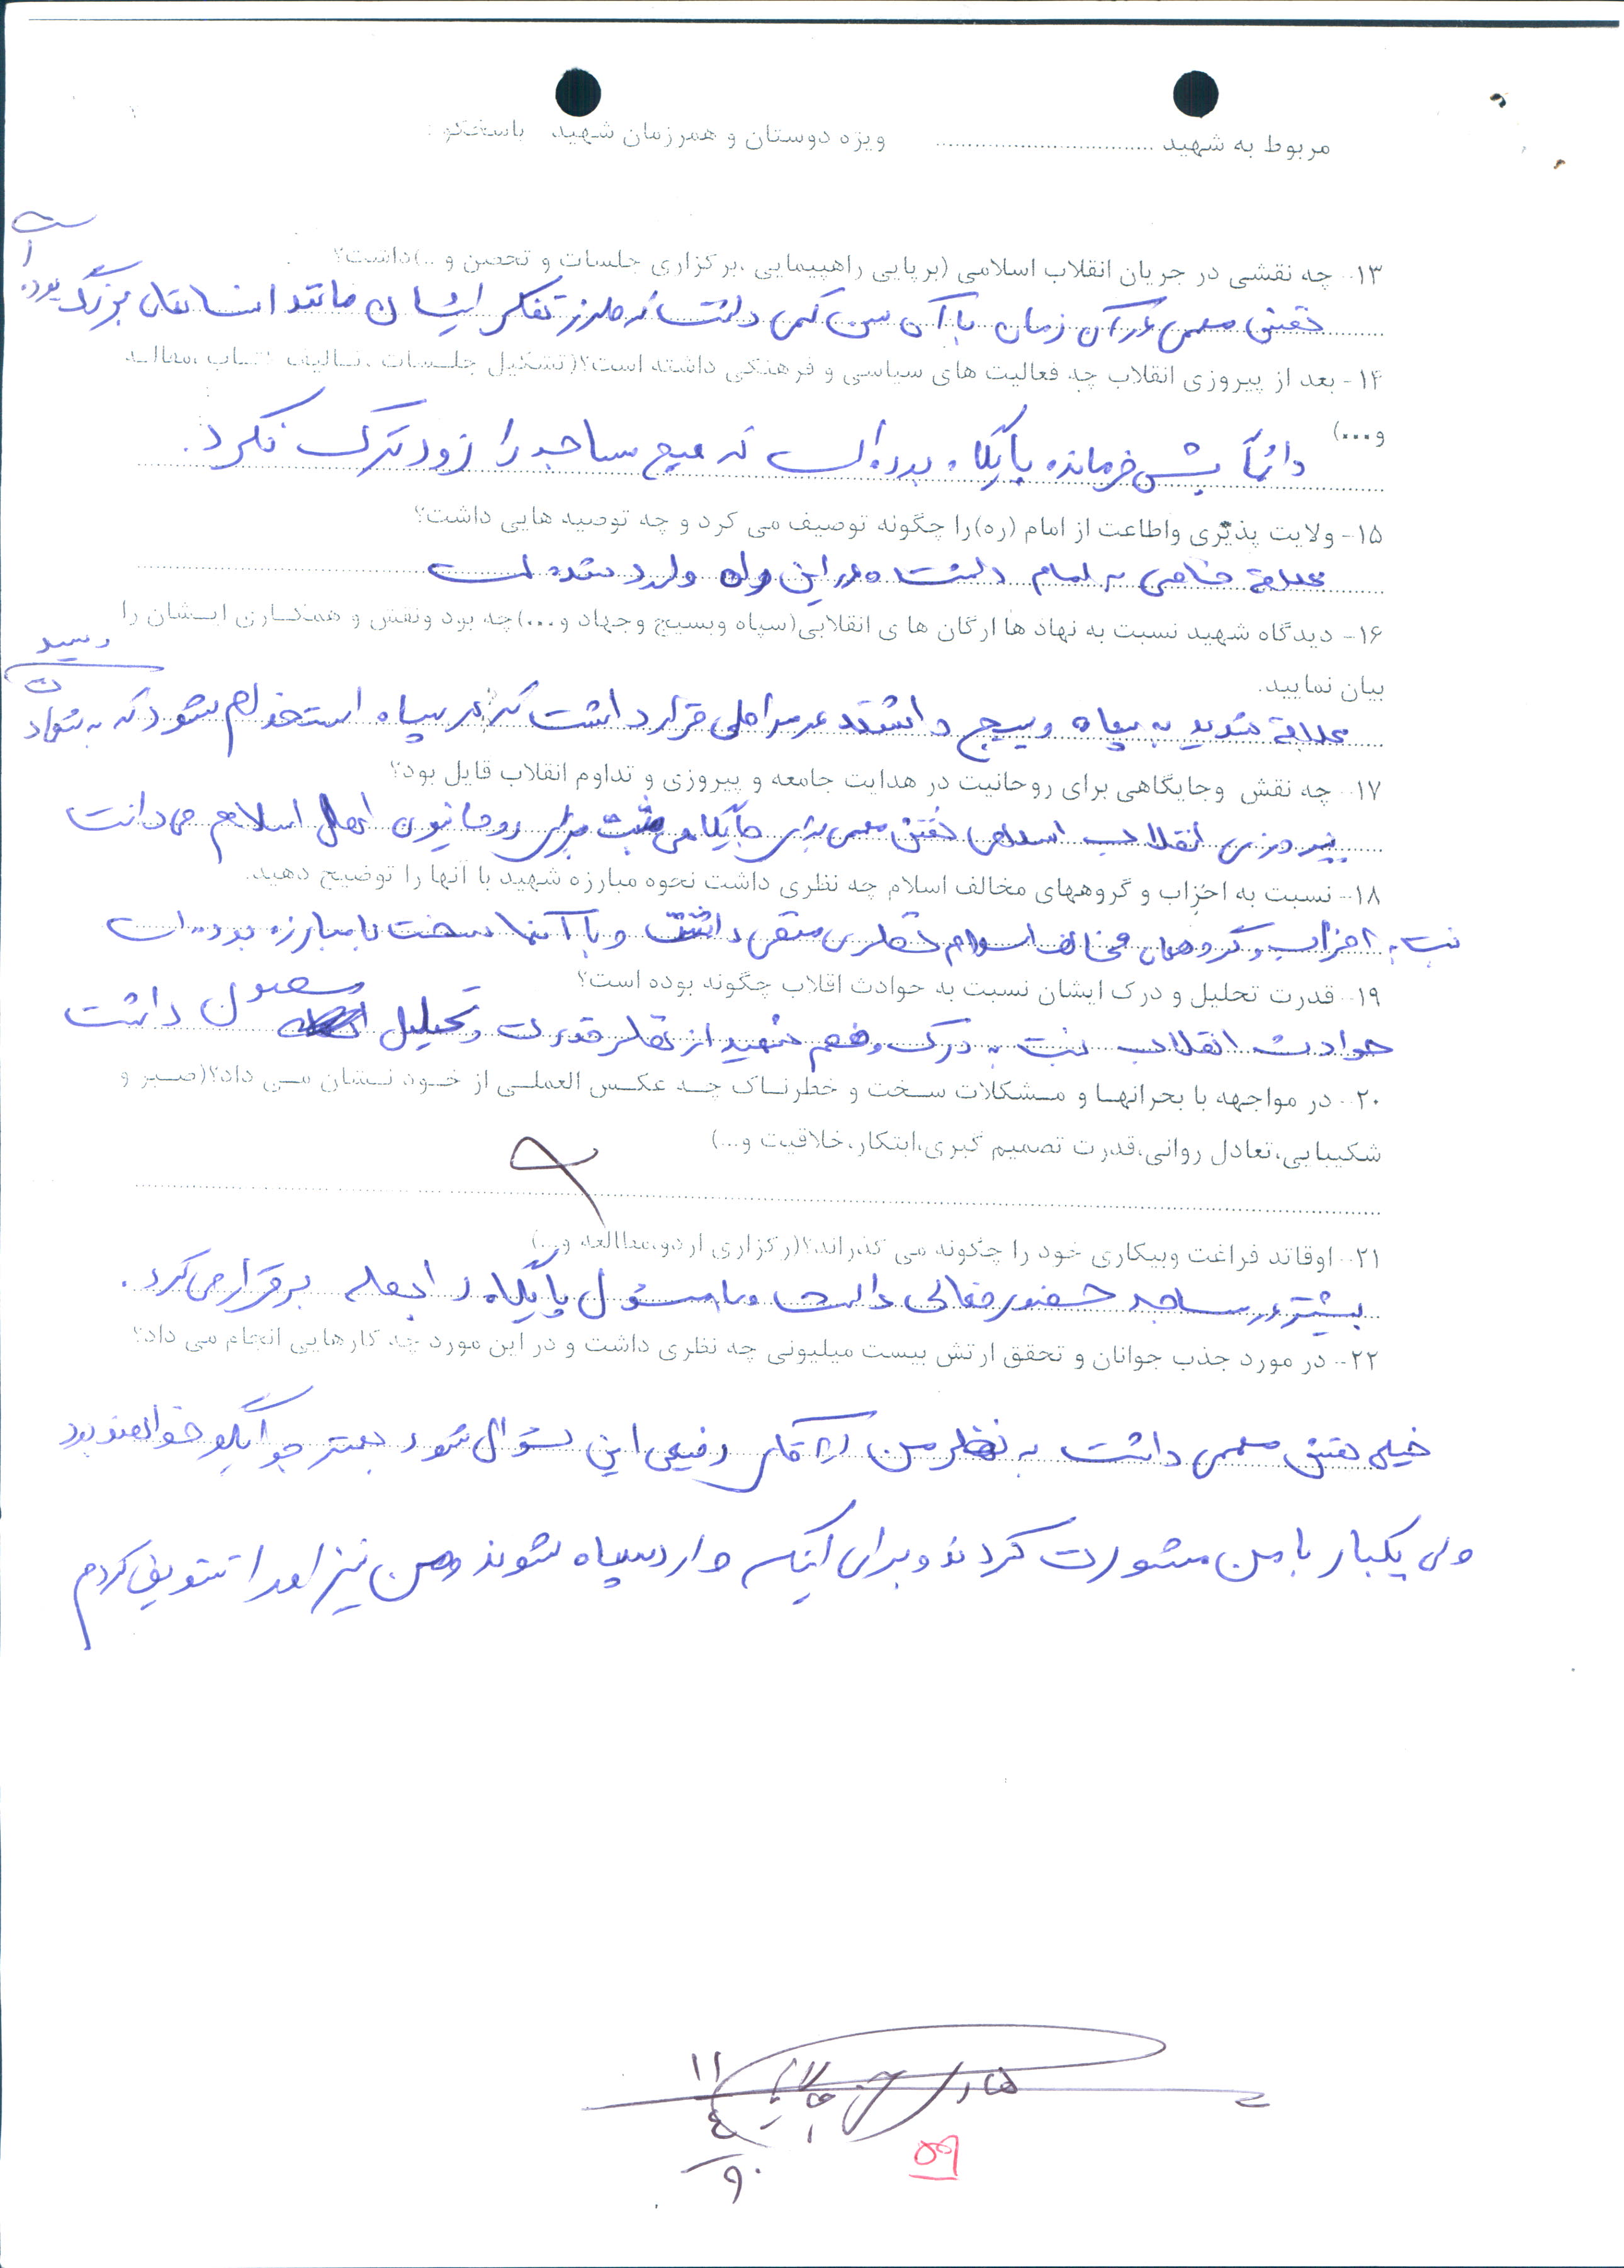 مربوط به شهید .................................. ویژه دوستان و همرزمان شهید پاسخگو :
۱۳- چه نقشی در جریان انقلاب اسلامی (برپایی راهپیمایی ،برگزاری جلسات و تحصن و ..)داشت؟
نقش مهمی در آن زمان با آن سن کمی داشت که طرز تفکر ایشان مانند انسانهای بزرگ بوده است
۱۴- بعد از پیروزی انقلاب چه فعالیت های سیاسی و فرهنگی داشته است؟(تشکیل جلسات ،تالیف کتاب ،مقاله
و...)
دائماً پیش فرمانده پایگاه بوده است که هیچ مساجد را زود ترک نکرد.
۱۵- ولایت پذیری واطاعت از امام (ره)را چگونه توصیف می کرد و چه توصیه هایی داشت؟
علاقه خاصی به امام داشت و در این راه وارد شده است
۱۶- دیدگاه شهید نسبت به نهاد ها ارگان ها ی انقلابی(سپاه وبسیج وجهاد و...)چه بود ونقش و همکاری ایشان را
بیان نمایید.
علاقه شدید به سپاه و بسیج داشتند در مراحلی قرار داشت که در سپاه استخدام شود که به شهادت رسید
۱۷- چه نقش وجایگاهی برای روحانیت در هدایت جامعه و پیروزی و تداوم انقلاب قایل بود؟
پیروزی انقلاب اسلامی نقش مهمی برای جایگاهی مثبت برای روحانیون اهل اسلام می دانست
۱۸- نسبت به احزاب و گروههای مخالف اسلام چه نظری داشت نحوه مبارزه شهید با آنها را توضیح دهید.
نسبت به احزاب و گروههای مخالف اسلام نظری منفی داشت و با آنها سخت با مبارزه بوده است
۱۹- قدرت تحلیل و درک ایشان نسبت به حوادث اقلاب چگونه بوده است؟
حوادث انقلاب نسبت به درک و فهم شهید از نظر قدرت و تحلیل معمول داشت
۲۰- در مواجهه با بحرانها و مشکلات سخت و خطرناک چه عکس العملی از خود نشان می داد؟(صبر و
شکیبایی،تعادل روانی،قدرت تصمیم گیری،ابتکار،خلاقیت و...)
۲۱- اوقاتد فراغت وبیکاری خود را چگونه می گذراند؟(رگزاری اردو،مطالعه و...)
بیشتر در مساجد حضور فعالی داشت و با مسئول پایگاه رابطه برقرار می کرد.
۲۲- در مورد جذب جوانان و تحقق ارتش بیست میلیونی چه نظری داشت و در این مورد چه کارهایی انجام می داد؟
خیلی نقش مهمی داشت به نظر من از آقای رفیعی این سئوال شود بهتر جوابگو خواهند بود
ولی یکبار با من مشورت کردند و برای اینکه وارد سپاه شوند و من نیز او را تشویق کردم
۱۱
۴
۹۰
۵۹